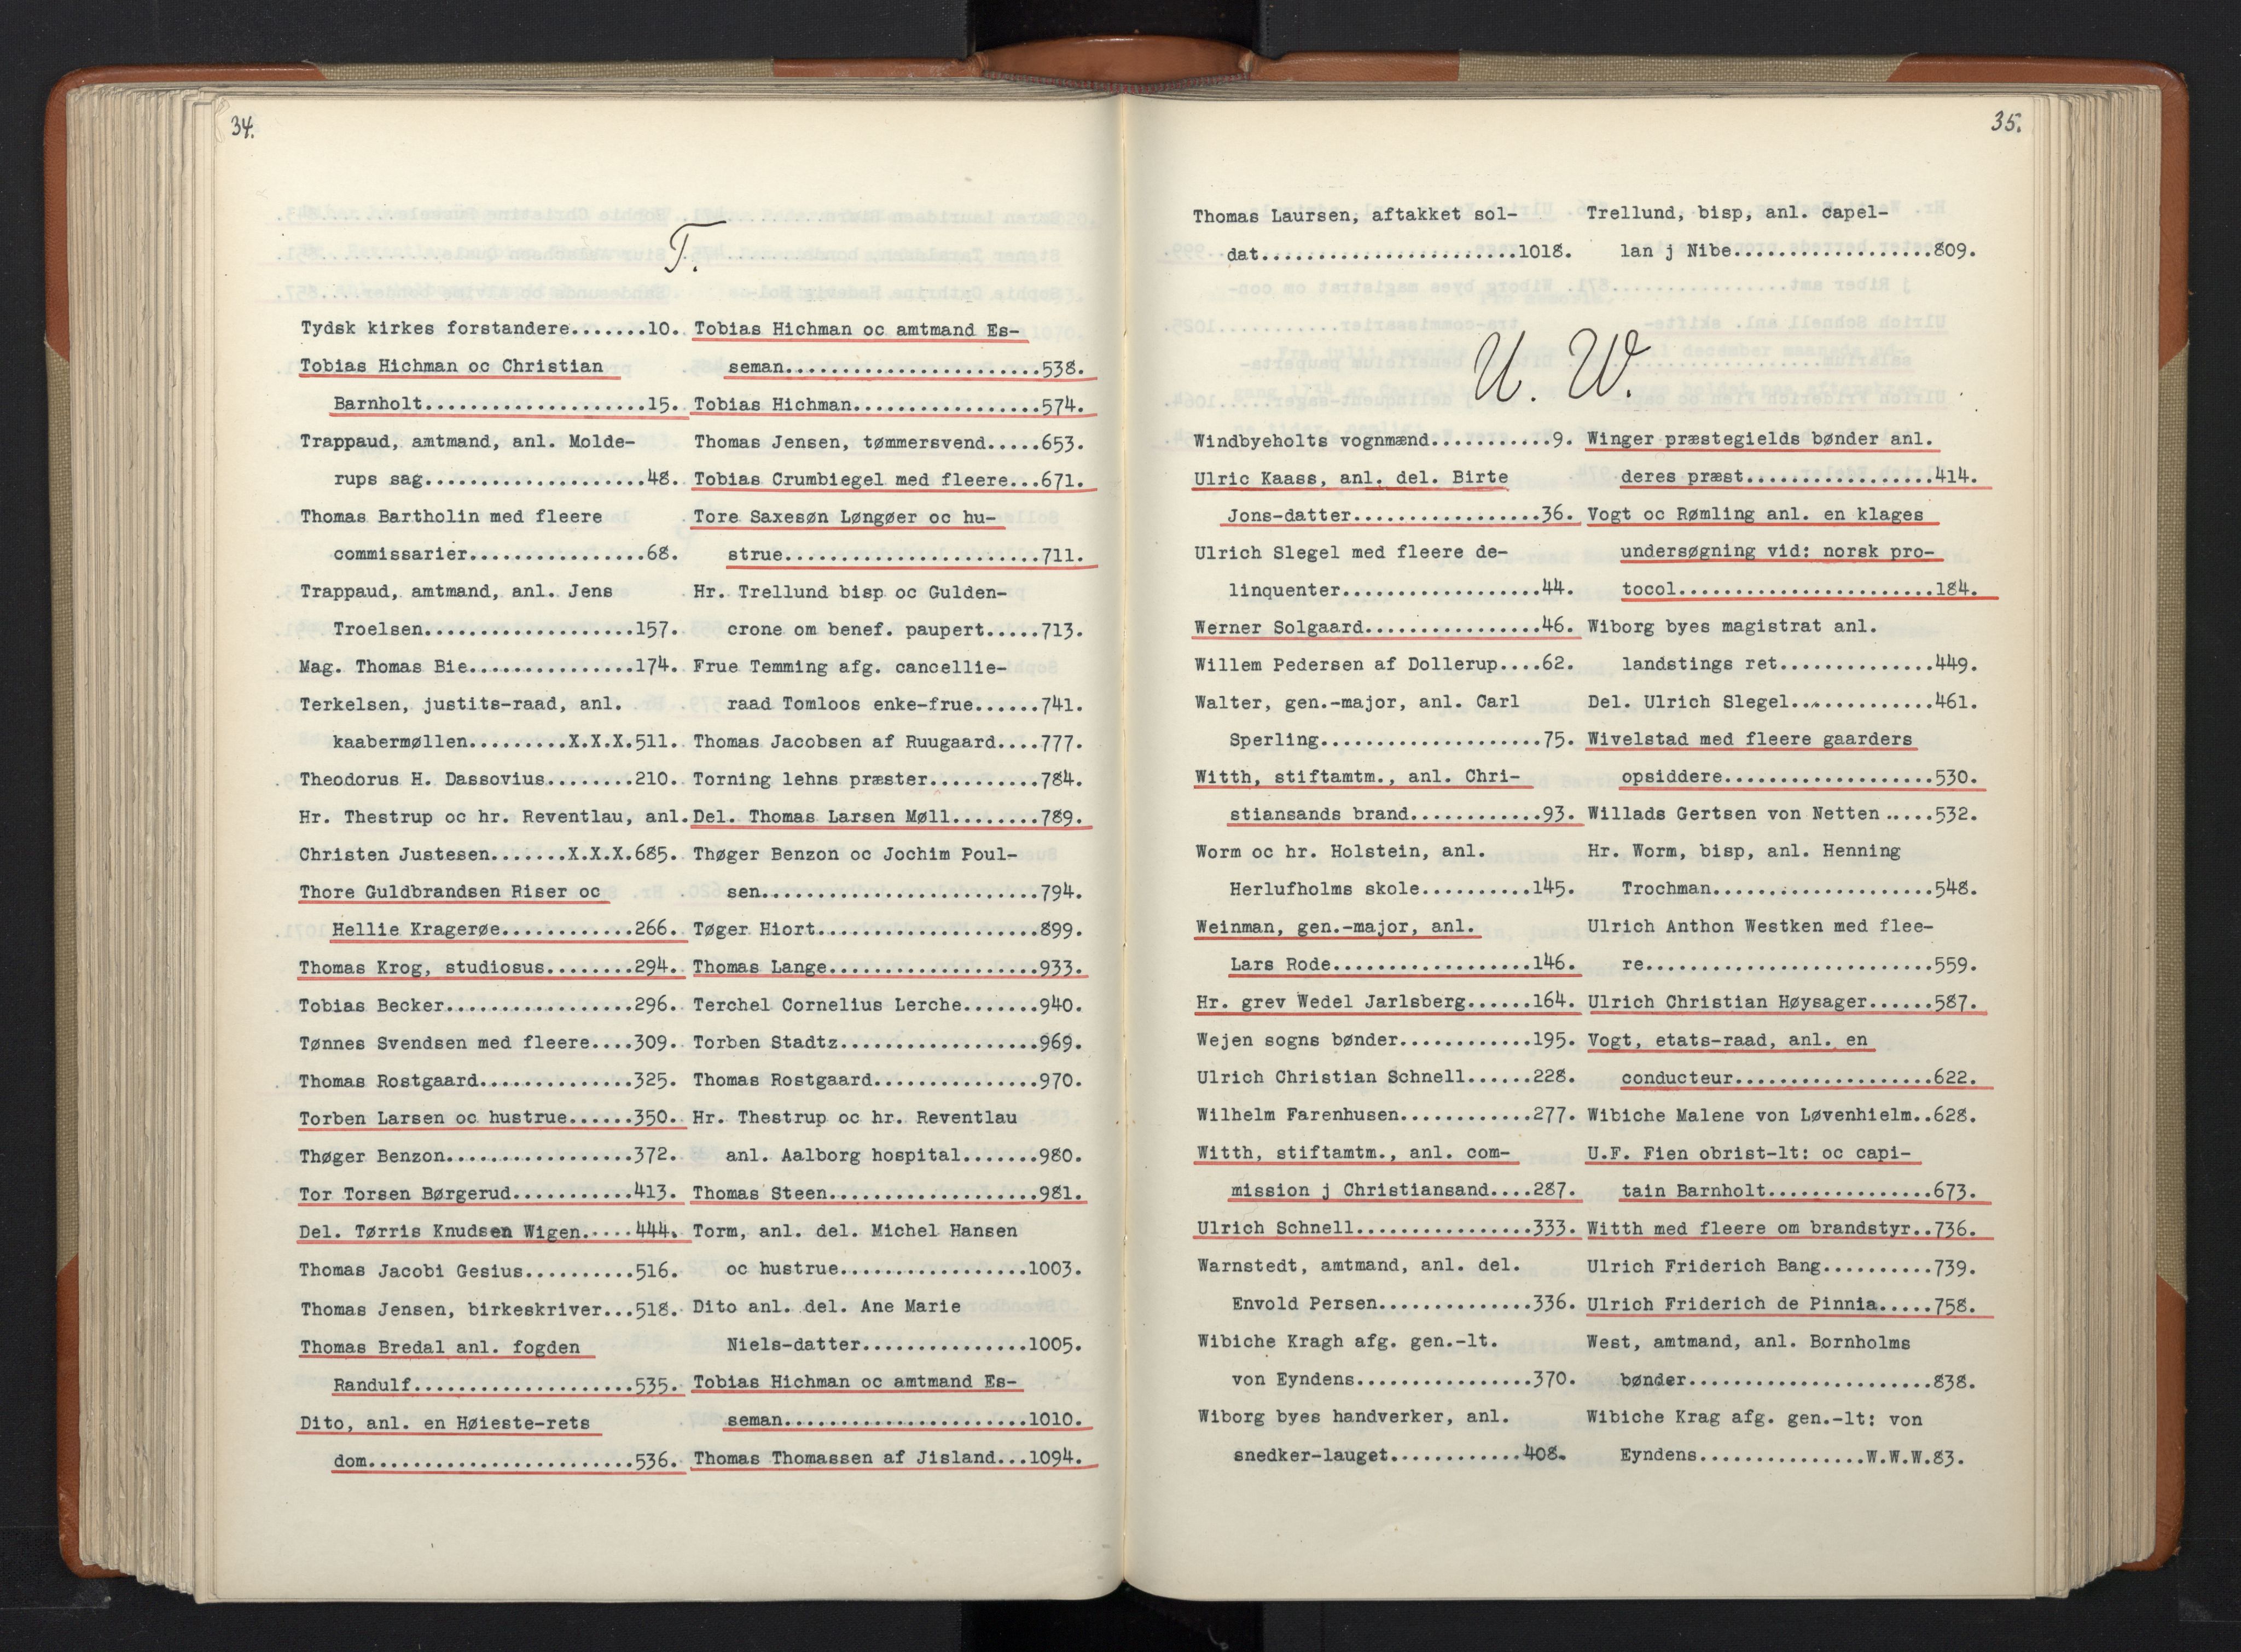 34.
T.
Tydsk kirkes forstandere.......10.
Tobias Hichman oc Christian
Barnholt....................15.
Trappaud, amtmand, anl. Molde-
rups sag....................48.
Thomas Bartholin med fleere
commissarier................68.
Trappaud, amtmand, anl. Jens
Troelsen...................157.
Mag. Thomas Bie...............174.
Terkelsen, justits-raad, anl.
kaabermøllen.........X.X.X.511.
Theodorus H. Dassovius........210.
Hr. Thestrup oc hr. Reventlau, anl.
Christen Justesen.......X.X.X.685.
Thore Guldbrandsen Riser oc
Hellie Kragerøe............266.
Thomas Krog, studiosus........294.
Tobias Becker.................296.
Tønnes Svendsen med fleere....309.
Thomas Rostgaard..............325.
Torben Larsen oc hustrue......350.
Thøger Benzon.................372.
Tor Torsen Børgerud...........413.
Del. Tørris Knudsen Wigen.....444.
Thomas Jacobi Gesius..........516.
Thomas Jensen, birkeskriver...518.
Thomas Bredal anl. fogden
Randulf....................535.
Dito, anl. en Høieste-rets
dom........................536.
Tobias Hichman oc amtmand Es-
seman.......................538.
Tobias Hichman.................574.
Thomas Jensen, tømmersvend.....653.
Tobias Crumbiegel med fleere...671.
Tore Saxesøn Løngøer oc hu-
strue.......................711.
Hr. Trellund bisp oc Gulden-
crone om benef. paupert.....713.
Frue Temming afg. cancellie-
raad Tomloos enke-frue......741.
Thomas Jacobsen af Ruugaard....777.
Torning lehns præster..........784.
Del. Thomas Larsen Møll........789.
Thøger Benzon oc Jochim Poul-
sen.........................794.
Tøger Hiort....................899.
Thomas Lange...................933.
Terchel Cornelius Lerche.......940.
Torben Stadtz..................969.
Thomas Rostgaard...............970.
Hr. Thestrup oc hr. Reventlau
anl. Aalborg hospital.......980.
Thomas Steen...................981.
Torm, anl. del. Michel Hansen
oc hustrue.................1003.
Dito anl. del. Ane Marie
Niels-datter...............1005.
Tobias Hichman oc amtmand Es-
seman......................1010.
Thomas Thomassen af Jisland...1094.
35.
Thomas Laursen, aftakket sol-
dat.......................1018.
Trellund, bisp, anl. capel-
lan j Nibe..................809.
U. W.
Windbyeholts vognmænd...........9.
Ulric Kaass, anl. del. Birte
Jons-datter.................36.
Ulrich Slegel med fleere de-
linquenter..................44.
Werner Solgaard................46.
Willem Pedersen af Dollerup....62.
Walter, gen.-major, anl. Carl
Sperling....................75.
Witth, stiftamtm., anl. Chri-
stiansands brand............93.
Worm oc hr. Holstein, anl.
Herlufholms skole..........145.
Weinman, gen.-major, anl.
Lars Rode..................146.
Hr. grev Wedel Jarlsberg......164.
Wejen sogns bønder............195.
Ulrich Christian Schnell......228.
Wilhelm Farenhusen............277.
Witth, stiftamtm., anl. com-
mission j Christiansand....287.
Ulrich Schnell................333.
Warnstedt, amtmand, anl. del.
Envold Persen..............336.
Wibiche Kragh afg. gen.-lt.
von Eyndens................370.
Wiborg byes handverker, anl.
snedker-lauget............408.
Winger præstegields bønder anl.
deres præst.................414.
Vogt oc Rømling anl. en klages
undersøgning vid: norsk pro-
tocol.......................184.
Wiborg byes magistrat anl.
landstings ret..............449.
Del. Ulrich Slegel.............461.
Wivelstad med fleere gaarders
opsiddere...................530.
Willads Gertsen von Netten.....532.
Hr. Worm, bisp, anl. Henning
Trochman....................548.
Ulrich Anthon Westken med flee-
re..........................559.
Ulrich Christian Høysager......587.
Vogt, etats-raad, anl. en
conducteur..................622.
Wibiche Malene von Løvenhielm..628.
U.F. Fien obrist-lt: oc capi-
tain Barnholt...............673.
Witth med fleere om brandstyr..736.
Ulrich Friderich Bang..........739.
Ulrich Friderich de Pinnia.....758.
West, amtmand, anl. Bornholms
bønder......................838.
Wibiche Krag afg. gen.-lt: von
Eyndens...............W.W.W.83.